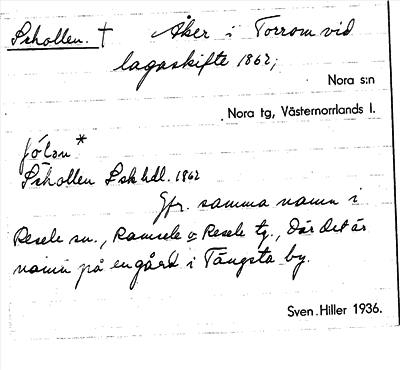 Sihollen. † Åker i Torrom vid
lagaskifte 1862;
Nora s:n
Nora tg, Västernorrlands l.
Sihollen Lskhdl. 1862
Jfr. samma namn i
Resele sn., Ramsele o Resele tg., där det är
namn på en gård i Tängsta by.
Sven Hiller 1936.